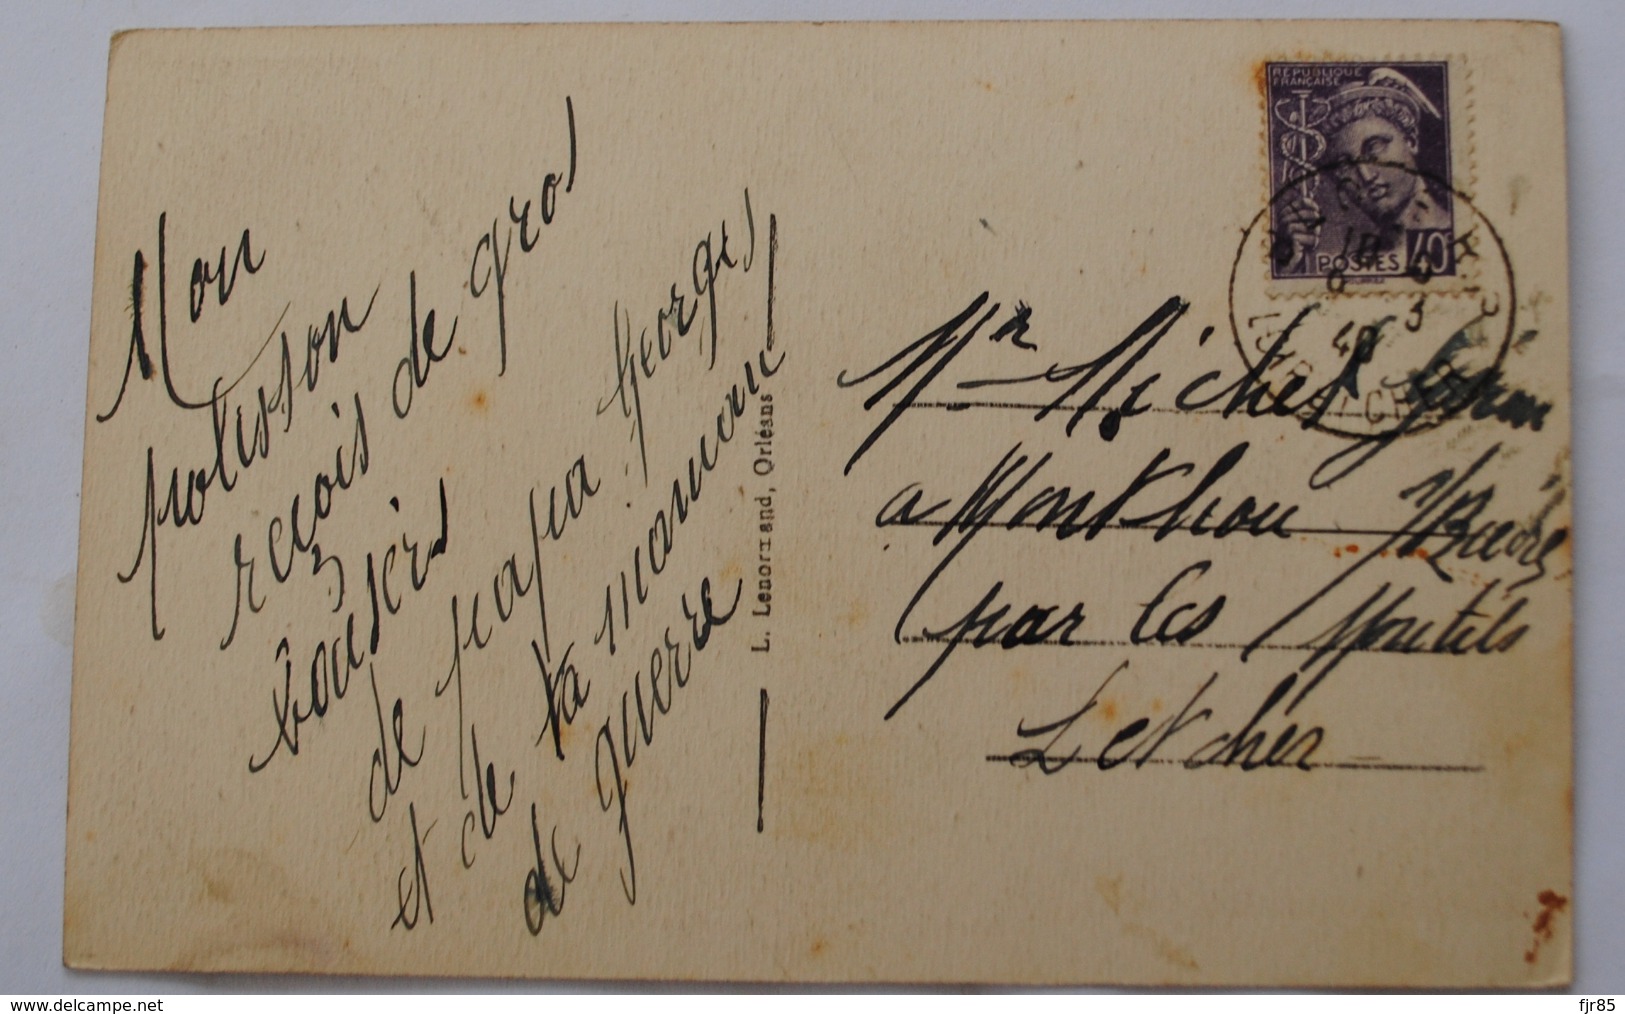 Mon
polisson
reçois de gros
baisers
de papa Georges
et de ta maman
de guerre
L. Lenormand, Orléans
RÉPUBLIQUE
FRANÇAISE
POSTES 40
18
6 3
40
LOIR ET CHER
Mr Michel
a Monthou s/Bievre
par les Montils
L et cher
www.delcampe.net
fjr85